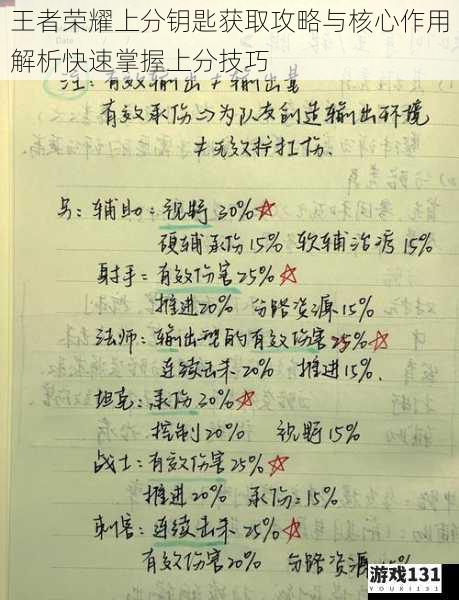 王者荣耀上分钥匙获取攻略与核心作用
解析快速掌握上分技巧
注:有效输出≠输出量
有效承伤=>为队友创造输出环境
≠无效抗伤.
辅助:视野30%☆
硬辅承伤15% 软辅治疗15%
射手:有效伤害25%☆
推进20% 分路资源15%
法师:输出型的有效伤害25%☆
连续击杀20% 推进15%.
坦克:承伤30%☆
控制20% 视野15%
战士:有效伤害25%☆
推进20% 承伤:15%
刺客:连续击杀25%☆
有效伤害20% 分路资源
游戏131
YOUXI131